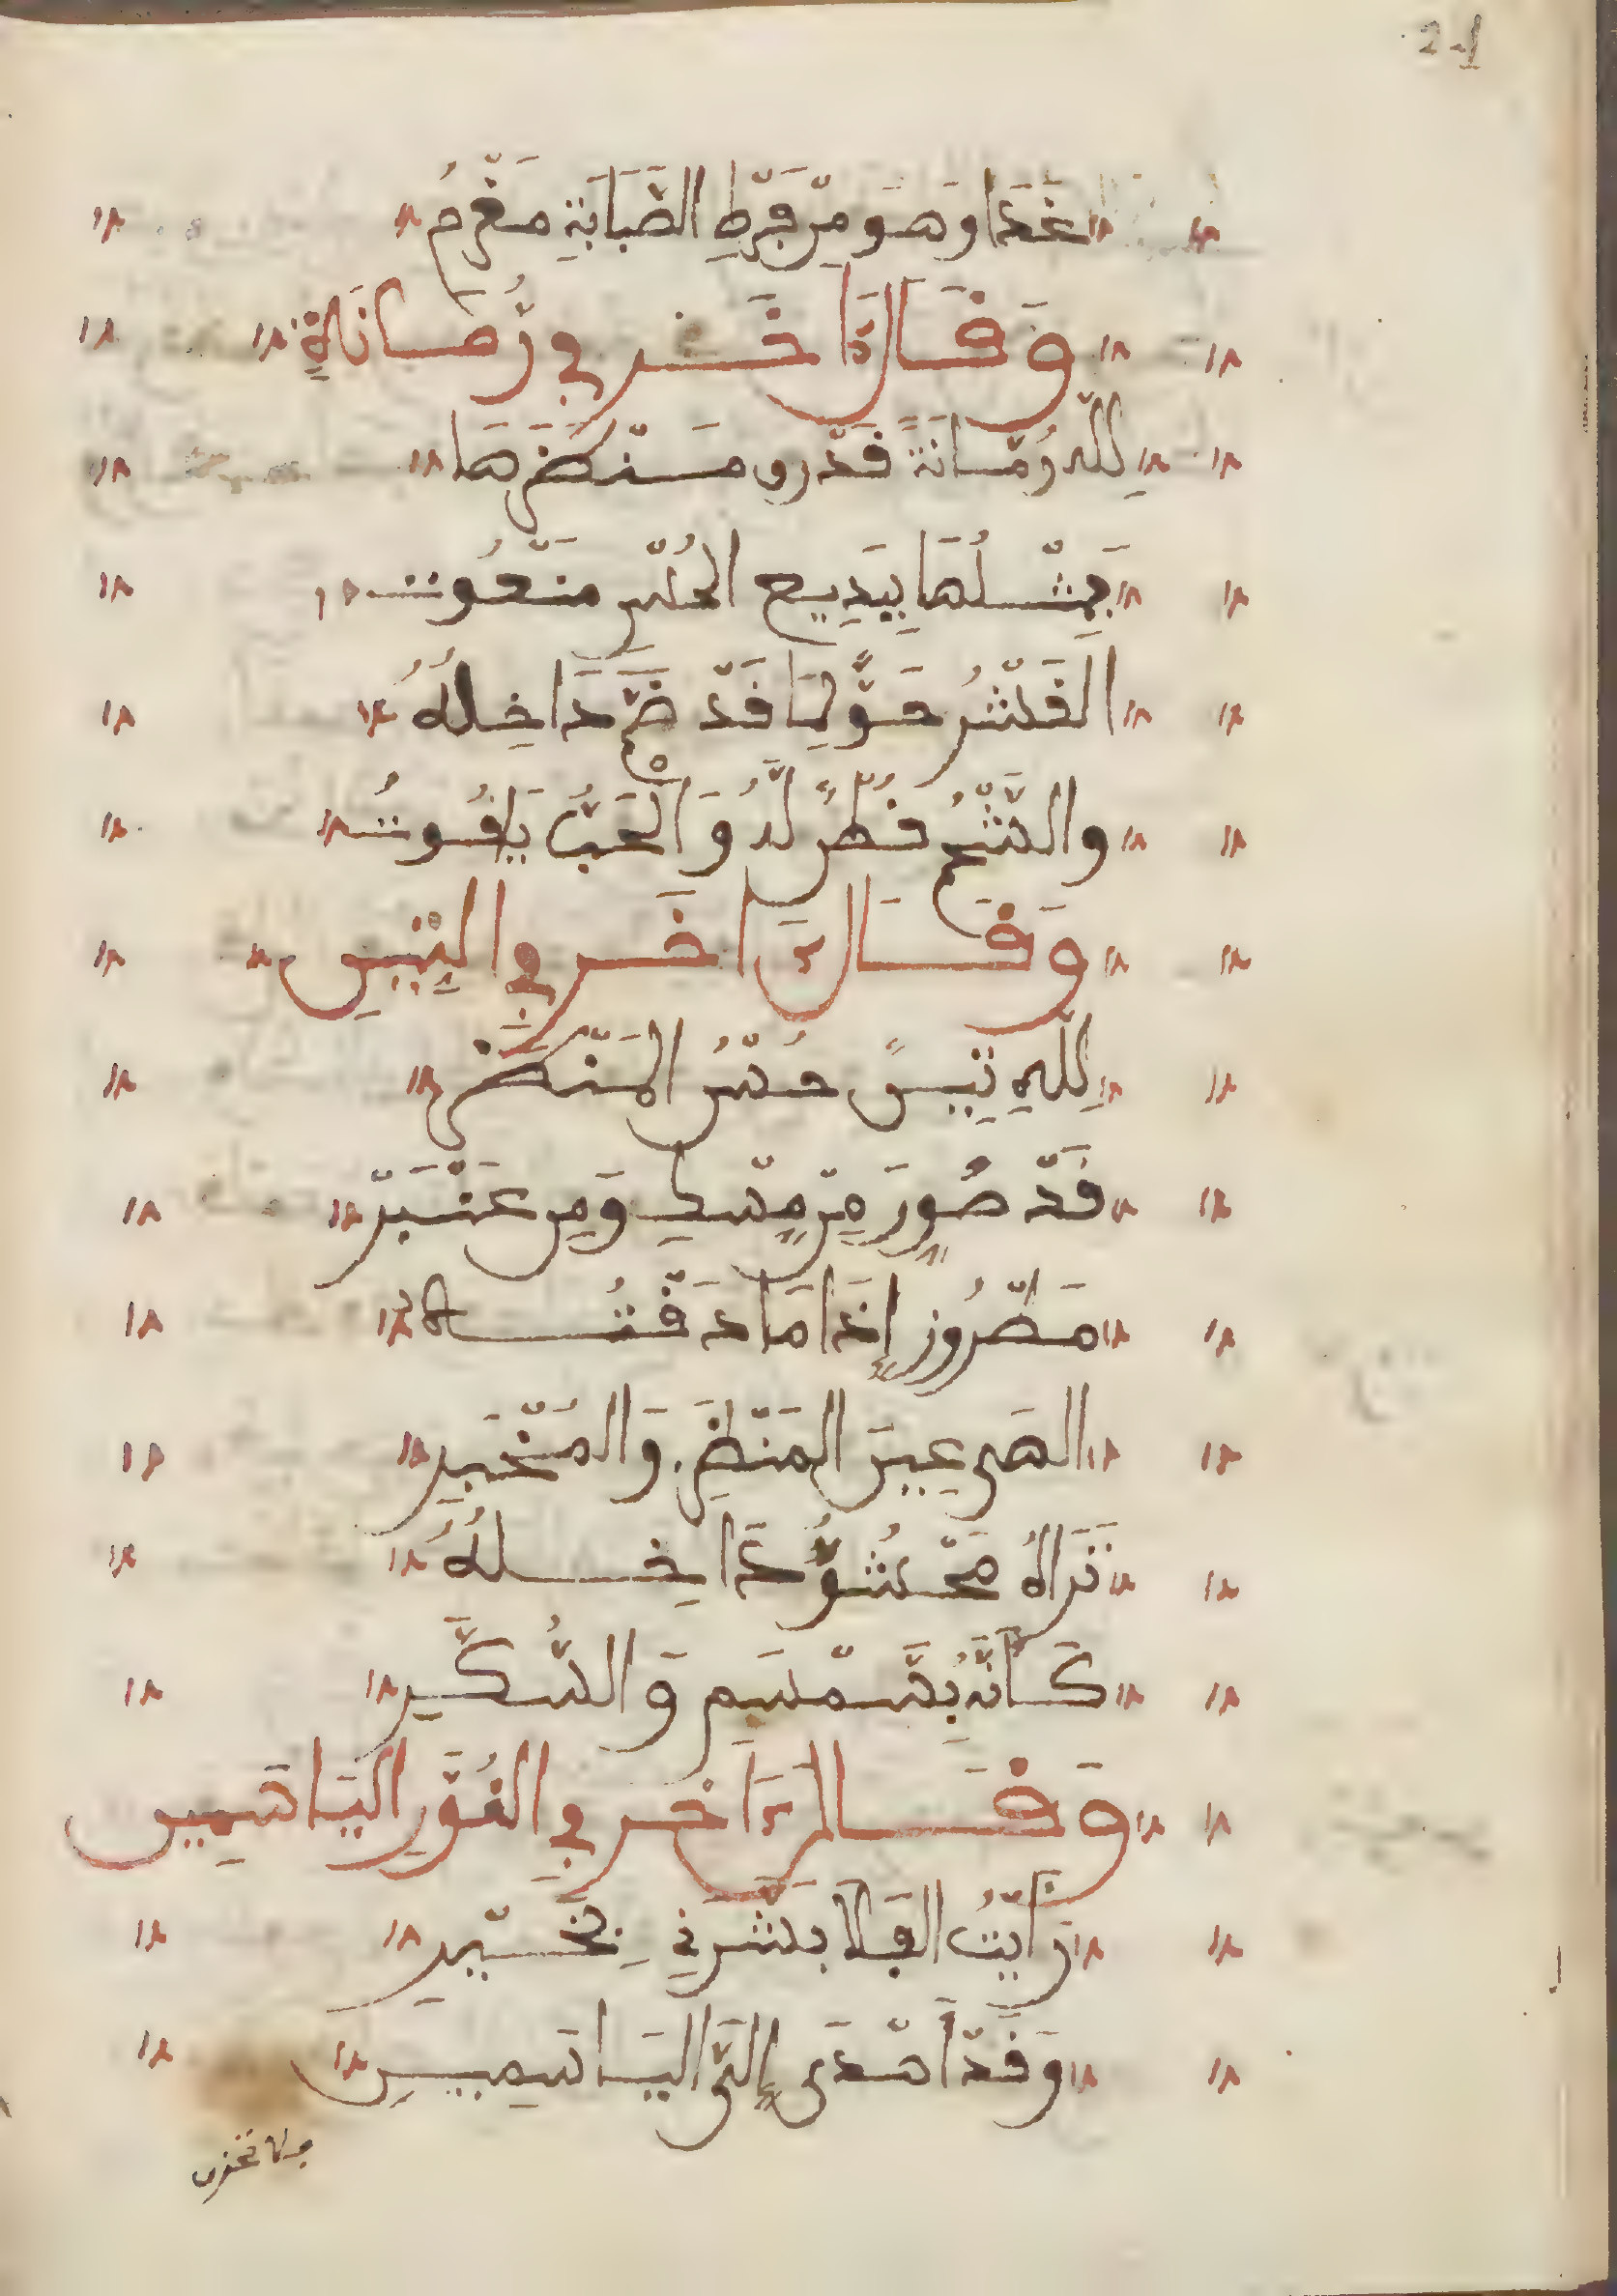 2-1
غَدَا وَهْوَ مِنْ فَرْطِ الصَّبَابَةِ مَغْرَمُ
وَقَالَ ءَاخَر في رُمَّانَةٍ
لِلَّهِ رُمَّانَةً قَدْ رو مَنْظَرُهَا
بِمِثْلُهَا بِبَدِيعِ الحُسْنِ مَنْعُوتُ
القِشْرُ حُقًّ لَهَا قَدْ ضَمَّ دَاخِلُهُ
والشَّحْمُ قُطْنً لَّهُ وَالْحَبُّ يَاقُوتُ
وَقَالَ ءَاخَر في التِّينِ
لِلَّهِ تِينً حُسْنُ المَنْظَرْ
قَدْ صُوِرَ مِنْ مِسْكٍ وَمِن عَنْبَرْ
مَطْرُوز إِذَا مَا ذَقْتُه
الهَى عِيينَ المَنْظَرِ وَالمَخْبَرِ
تَرَاهُ مَحْشُوًّ دَاخِلُهُ
كَأَنَّهُ بِسَمْسَمٍ وَالسُّكَّرِ
وَقَالَ ءَاخَر في النُوَّرِ اليَاسَمِين
رَأَيْتُ الفَلَا بَشَّرَنِي بِخَيْرِ
وَقَدْ أَهْدَى إِلَيَّ اليَاسَمِينِ
ولا تحزن